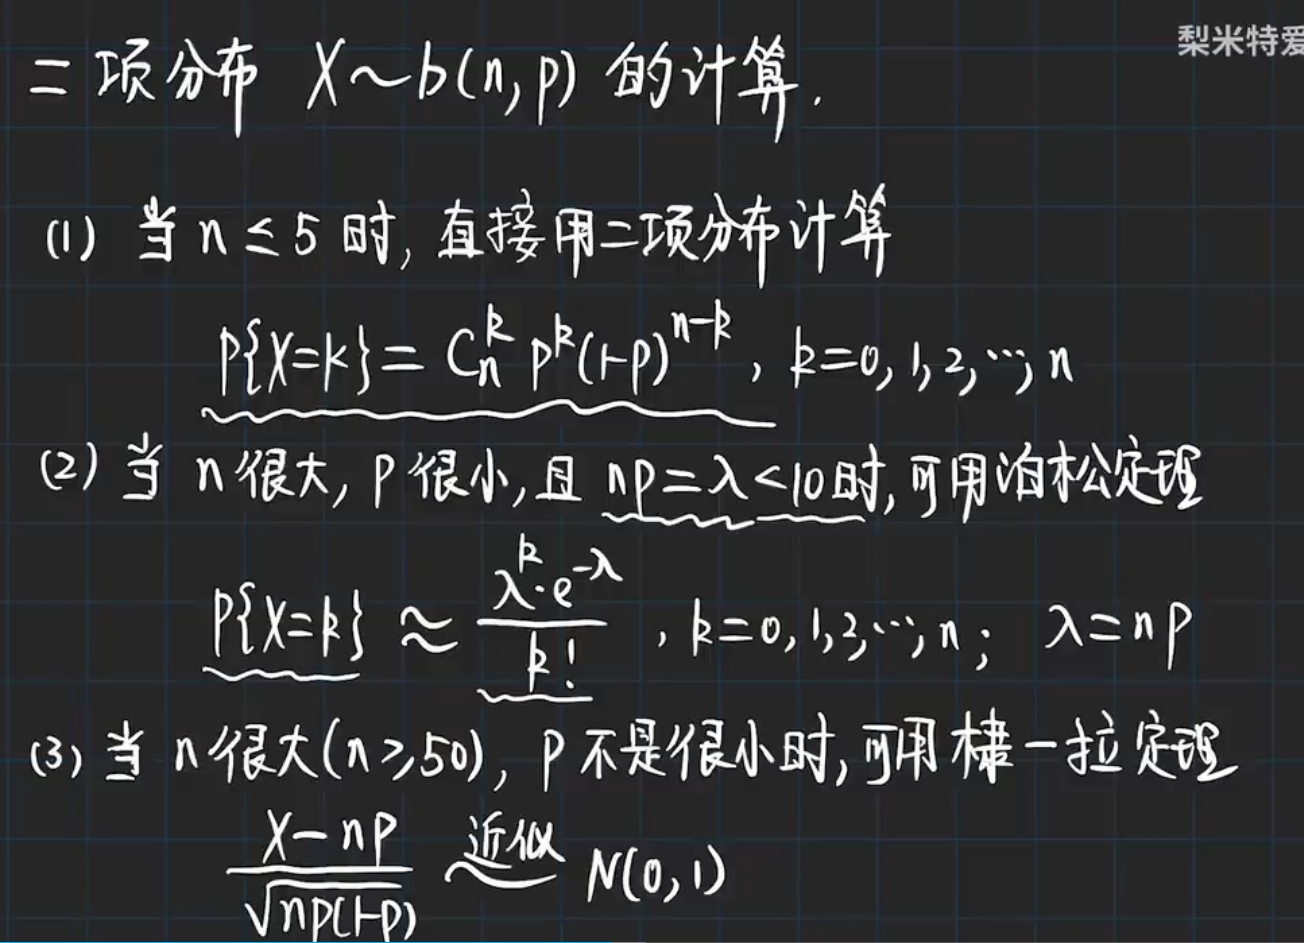 梨米特爱
二项分布 X~b(n,p) 的计算.
(1) 当 n≤5 时, 直接用二项分布计算
P{X=k} = C_n^k p^k (1-p)^{n-k}, k=0,1,2,…,n
(2) 当 n很大, p很小, 且 np=λ<10时, 可用泊松定理
P{X=k} ≈ \frac{λ^k·e^{-λ}}{k!}, k=0,1,2,…,n; λ=np
(3) 当 n很大(n≥50), p不是很小时, 可用棣一拉定理
\frac{X-np}{\sqrt{np(1-p)}} \overset{近似}{~} N(0,1)